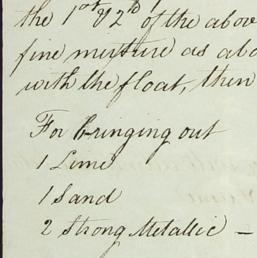 the 1st & 2d of the above
fine mixture as abo
with the float, then
For bringing out
1 Lime
1 Sand
2 Strong Metallic —